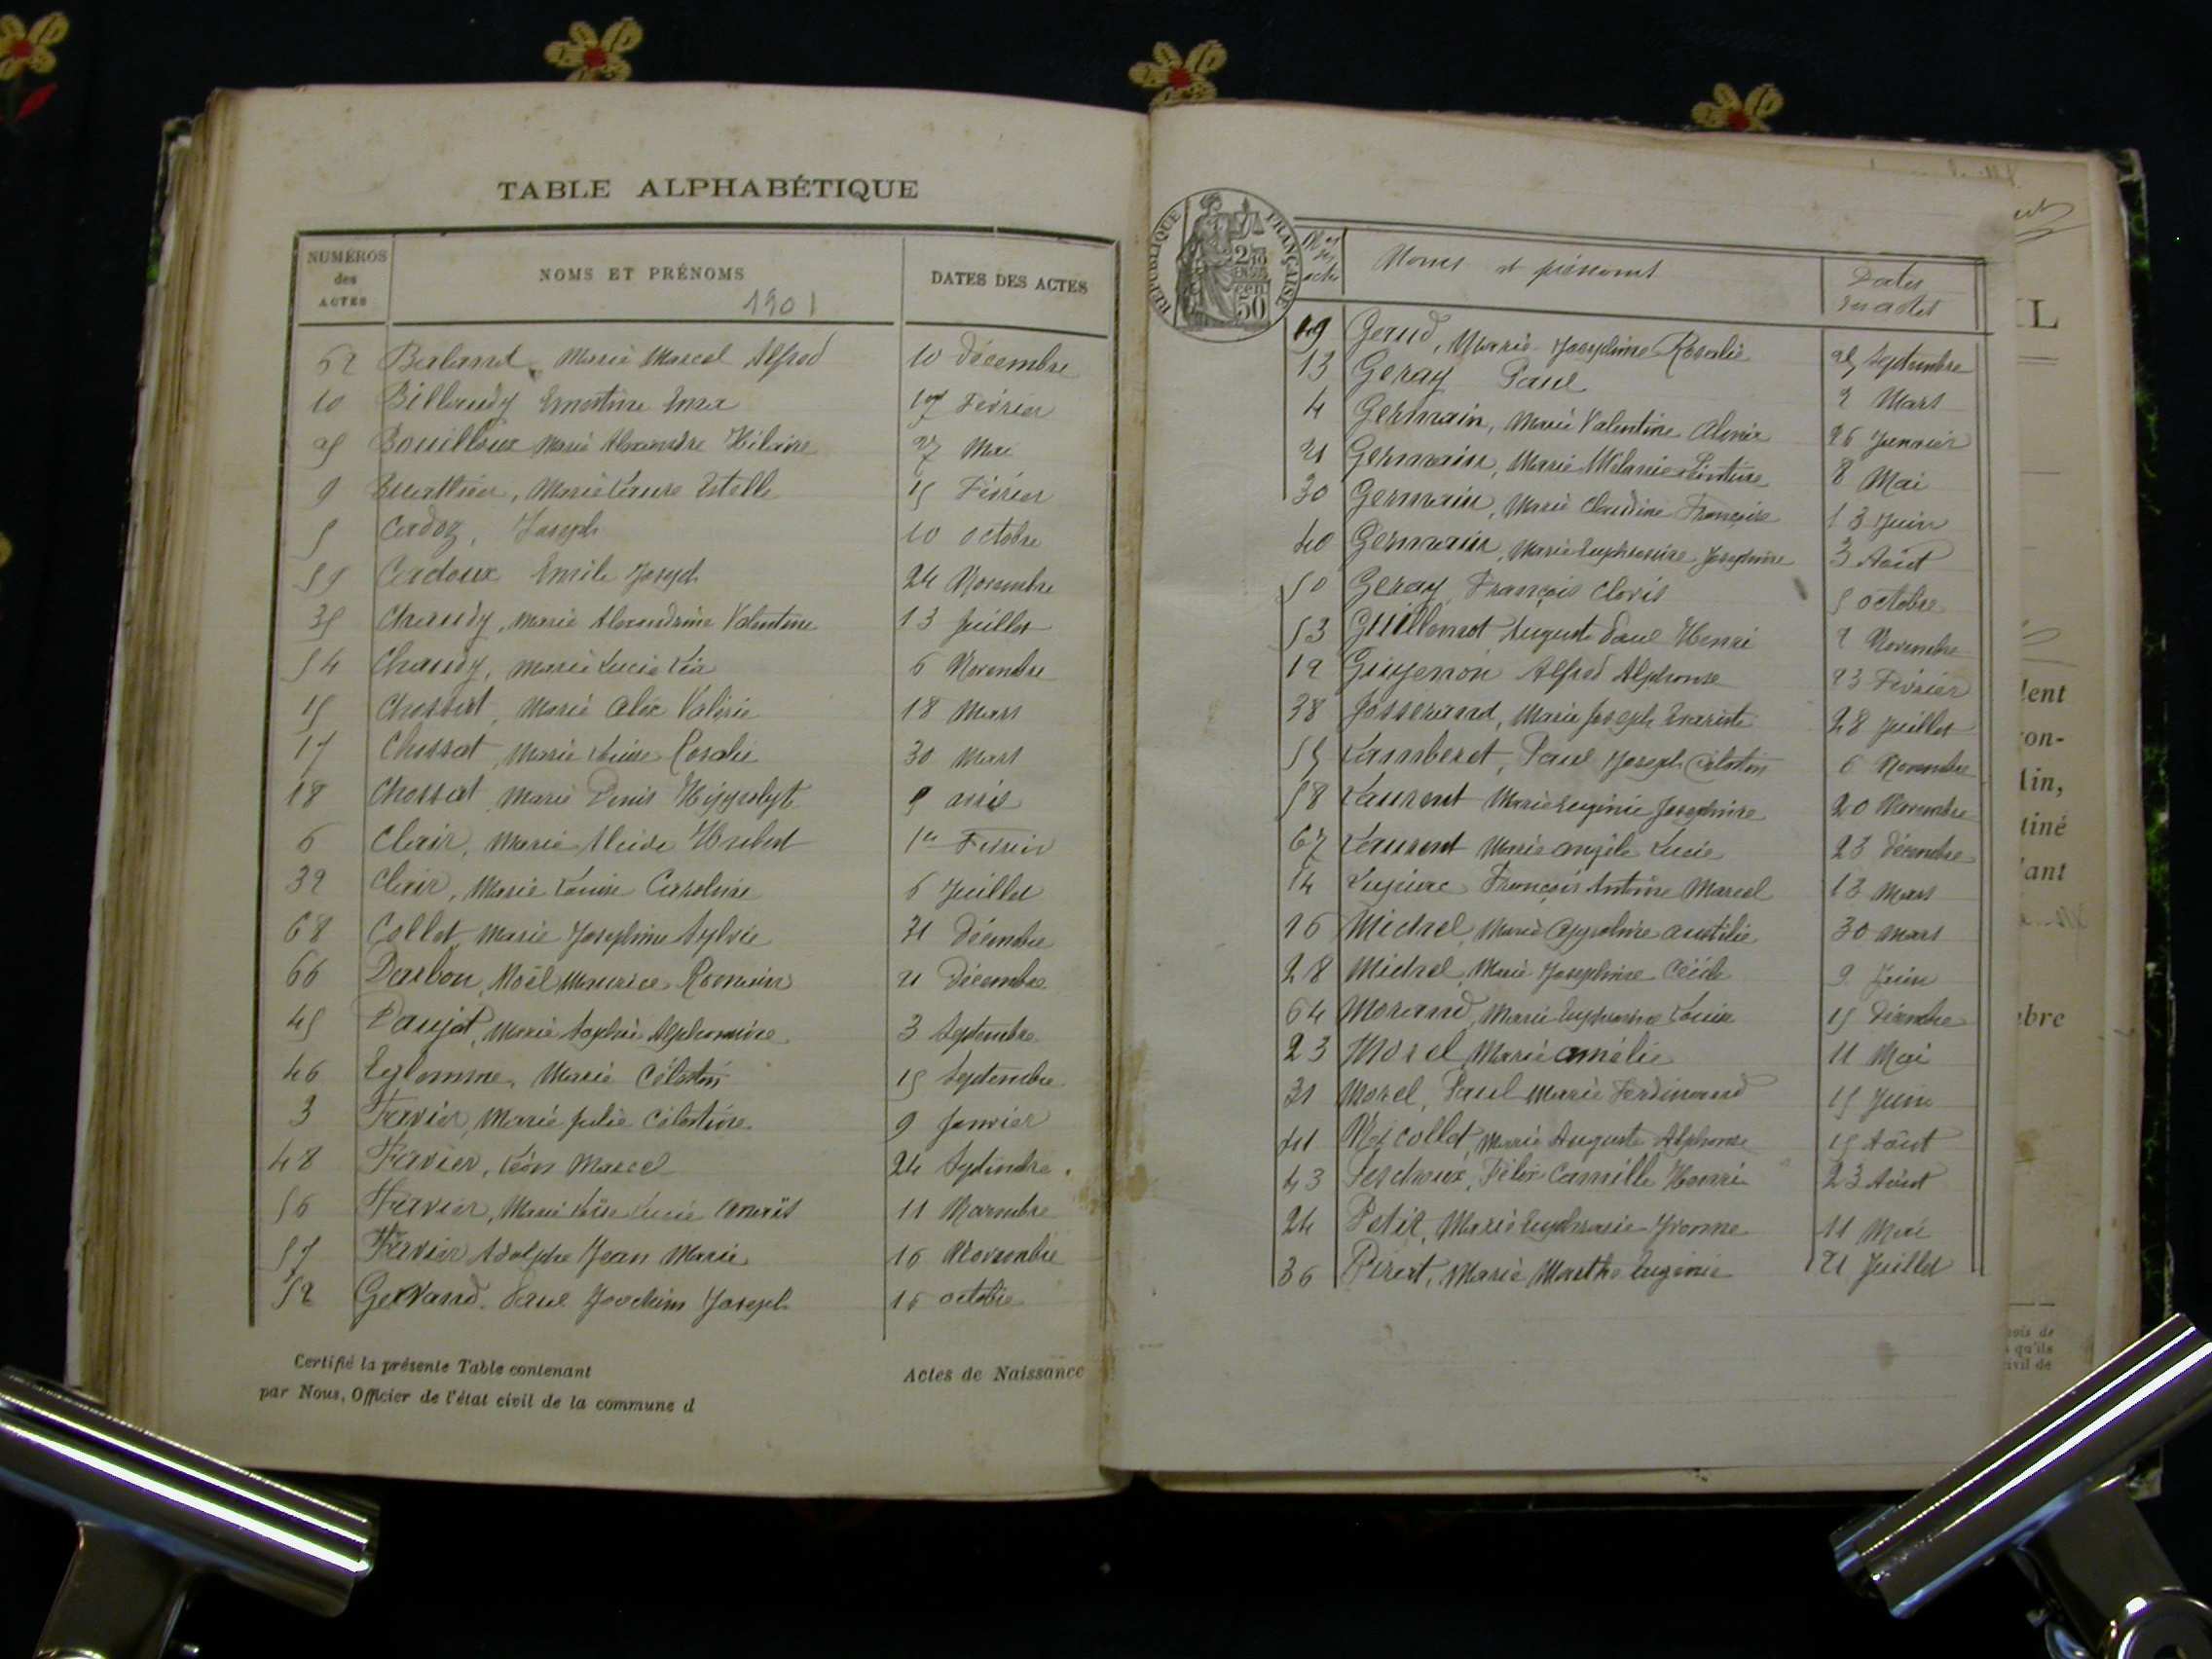 TABLE ALPHABÉTIQUE
NUMÉROS des ACTES NOMS ET PRÉNOMS 1901 DATES DES ACTES
62 Marie Marcel Alfred 10 décembre
10 Billaudy Ernestine 17 Février
25 Bouilloux Marie Alexandre Hilaire 27 Mai
9 Marie Laure Estelle 15 Février
5 Cadoz, Joseph 10 octobre
59 Cadoux Emile Joseph 24 Novembre
35 Chaudy, Marie Alexandrine Valentine 13 Juillet
54 Chaudy, Marie Lucie 6 Novembre
15 Chossat, Marie Valérie 18 Mars
17 Chossat, Marie Louise Rosalie 30 Mars
18 Chossat Marie Denis Hippolyte 9 avril
6 Clair, Marie Hubert 1er Février
32 Clair, Marie Louise Caroline 6 Juillet
68 Collet Marie Joséphine Sylvie 31 Décembre
66 Darbon, Noël Maurice Romain 21 Décembre
45 Daujat, Marie Sophie Alphonsine 3 Septembre
46 Marie Célestin 15 Septembre
3 Favier, Marie Julie Célestine 9 Janvier
48 Favier, Léon Marcel 24 Septembre
56 Favier, Marie Lucie Anaïs 11 Novembre
57 Favier Adolphe Jean Marie 16 Novembre
52 Paul Joachim Joseph 16 octobre
Certifié la présente Table contenant Actes de Naissance
par Nous, Officier de l'état civil de la commune d
RÉPUBLIQUE FRANÇAISE
50
Nos des actes Noms et prénoms Dates des actes
49 Marie Joséphine Rosalie 25 Septembre
13 Geray Paul 2 Mars
4 Germain, Marie Valentine 26 Janvier
21 Germain, Marie Mélanie 8 Mai
30 Germain, Marie Claudine Françoise 13 Juin
40 Germain, Marie Euphrosine Joséphine 3 Août
50 Geray François Clovis 5 octobre
53 Guillemot Auguste Paul Henri 2 Novembre
12 Guyenon Alfred Alphonse 23 Février
38 Josserand, Marie Joseph Evariste 28 Juillet
55 Lamberet, Paul Joseph Célestin 6 Novembre
58 Laurent Marie Eugénie Joséphine 20 Novembre
67 Laurent Marie Angèle Lucie 23 décembre
14 François Antoine Marcel 13 Mars
16 Michel, Marie 30 mars
28 Michel, Marie Joséphine Cécile 9 Juin
64 Morand, Marie Euphrosine Louise 15 Décembre
23 Morel Marie Amélie 11 Mai
31 Morel, Paul Marie Ferdinand 15 Juin
41 Nicollet, Marie Auguste Alphonse 15 Août
43 Peschoux, Félix Camille Henri 23 Août
24 Petit, Marie Euphrasie Yvonne 11 Mai
36 Marie Marthe Eugénie 21 Juillet